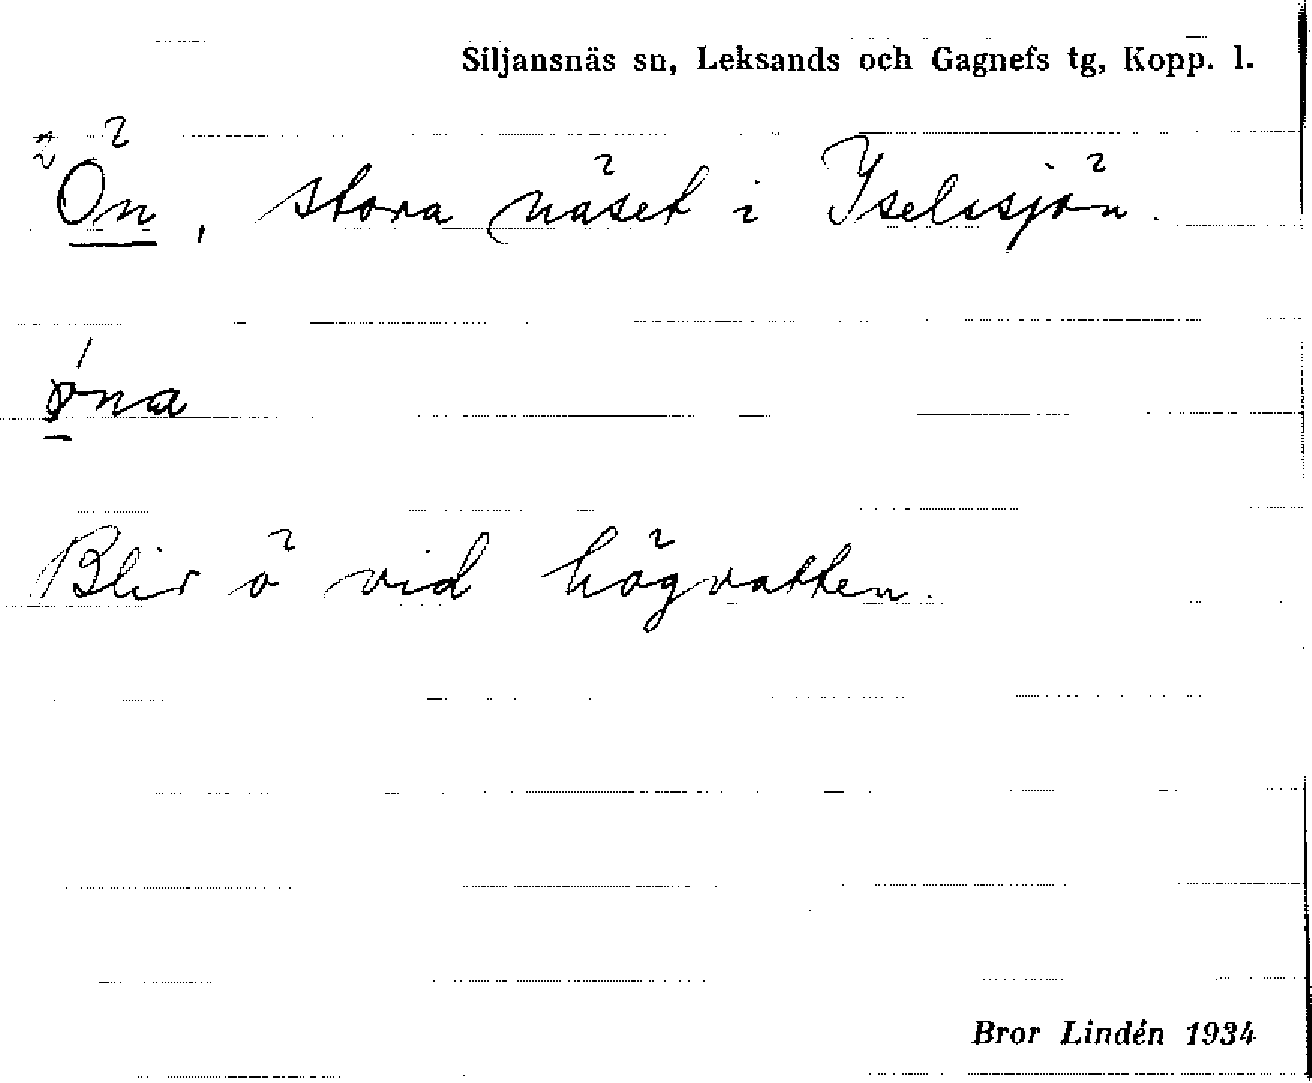 Siljansnäs sn, Leksands och Gagnefs tg, Kopp. l.
Ön, stora näset i
øna
Blir ö vid högvatten.
Bror Lindén 1934